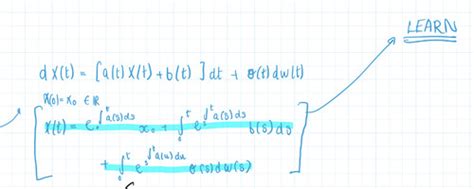 LEARN
dX(t) = [a(t)X(t) + b(t)]dt + σ(t)dw(t)
X(0) = x₀ ∈ ℝ
X(t) = e^{∫₀ᵗ a(s)ds} x₀ + ∫₀ᵗ e^{∫ₛᵗ a(s)ds} b(s)ds
+ ∫₀ᵗ e^{∫ₛᵗ a(u)du} σ(s)dw(s)